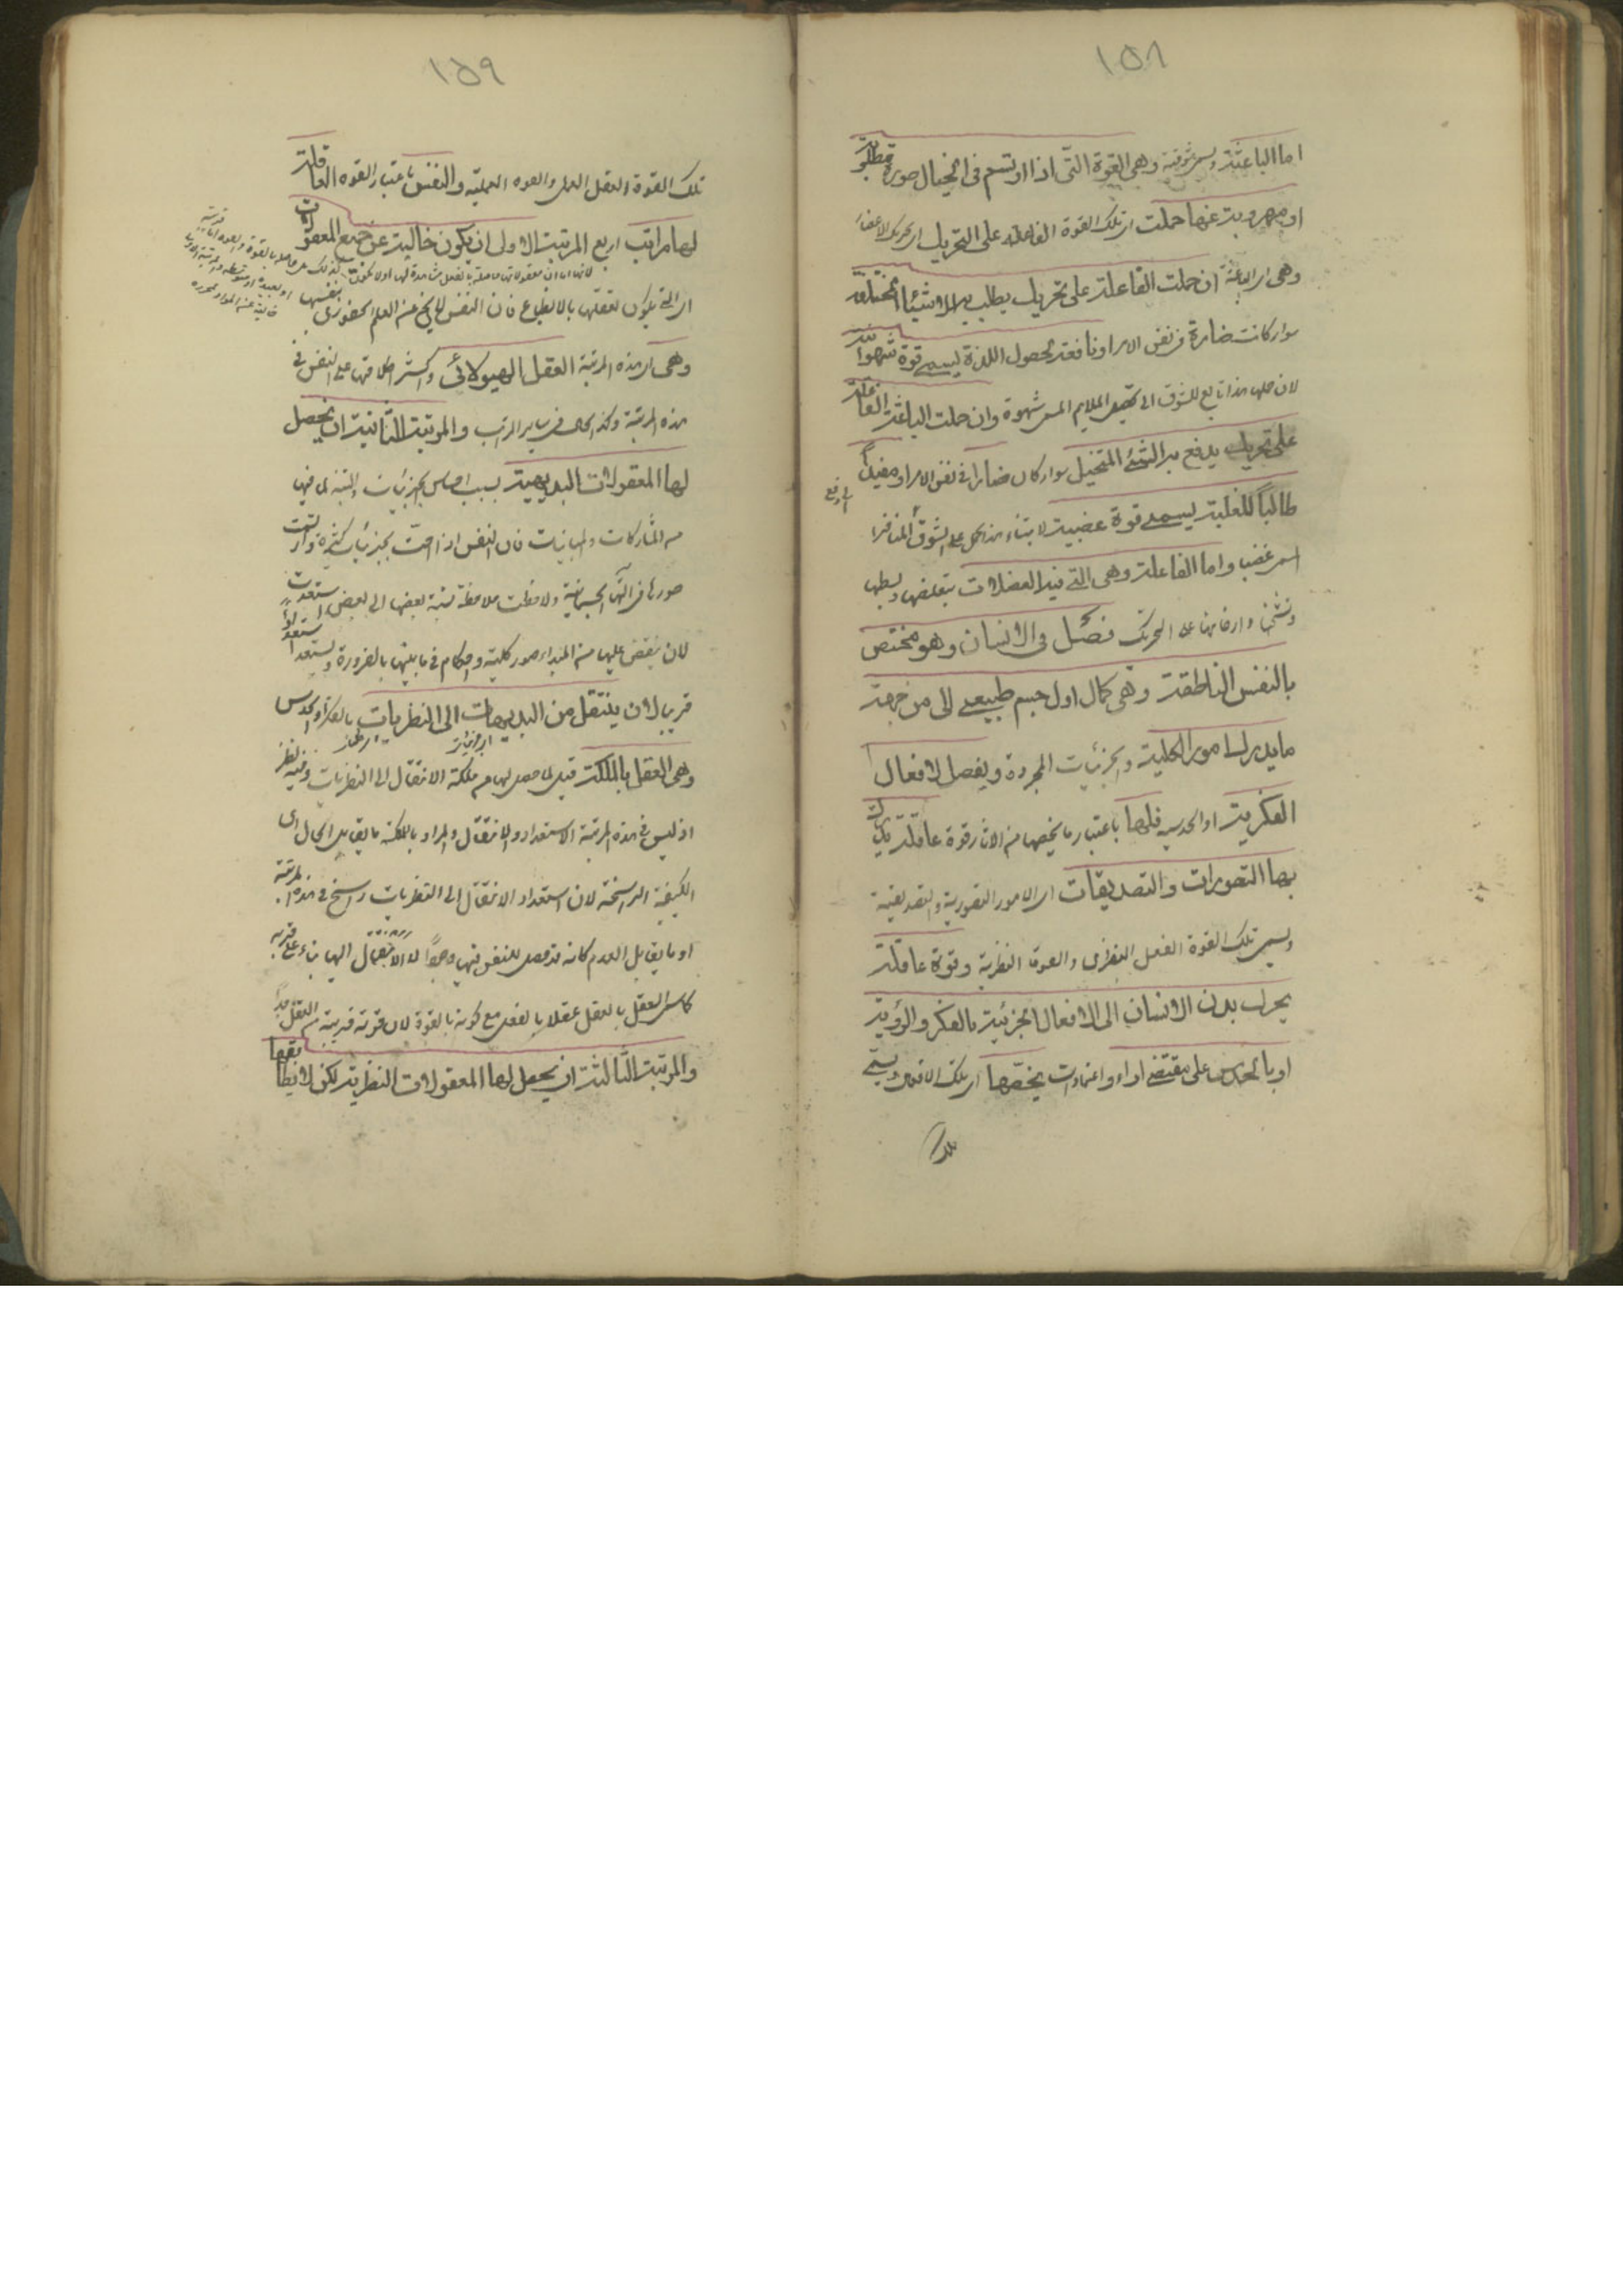 ١٥٨
اما الباعثة ويسمى شوقية وهى القوة التى اذا ارتسم فى الخيال صورة مطلوبة
او مهروبة عنها حملت اى تلك القوة الفاعلة على التحريك اى تحريك الاعضاء
وهى اى الباعثة ان حملت الفاعلة على تحريك يطلب به الاشياء المتخيلة
سواء كانت ضارة فى نفس الامر او نافعة لحصول اللذة يسمى قوة شهوانية
لان حملها هذا تابع للشوق الى تحصيل الملايم المسمى شهوة وان حملت الباعثة الفاعلة
على تحريك يدفع به الشئ المتخيل سواء كان ضارا فى نفس الامر او مفيداً
طالباً للغلبة يسمى قوة غضبية لابتناء هذا الحمل على الشوق الى دفع المنافر
المسمى غضبا واما الفاعلة وهى التى تعد العضلات بتقلصها وبسطها
وتشنجها وارخائها على التحريك فصل فى الانسان وهو مختص
بالنفس الناطقة وهى كمال اول لجسم طبيعى آلى من جهة
ما يدرك الامور الكلية والجزئيات المجردة ويفعل الافعال
الفكرية او الحدسية فلها باعتبار ما يخصها من الآثار قوة عاقلة يدرك
بها التصورات والتصديقات اى الامور التصورية والتصديقية
ويسمى تلك القوة العقل النظرى والقوة النظرية وقوة عاملة
يحرك بدن الانسان الى الافعال الجزئية بالفكر والروية
او بالحدس على مقتضى اراء واعتقادات يخصها اى تلك الافعال ويسمى
تلك
١٥٩
تلك القوة العقل العملى والقوة العملية والنفس باعتبار القوة العاقلة
لها مراتب اربع المرتبة الاولى ان يكون خالية عن جميع المعقولات
اى التى يكون تعقلها بالانطباع فان النفس لا يخلو عن العلم الحضورى بنفسها
وهى اى هذه المرتبة العقل الهيولانى واكثر اطلاقها على النفس فى
هذه المرتبة وكذا الحال فى ساير المراتب والمرتبة الثانية ان يحصل
لها المعقولات البديهية بسبب احساس الجزئيات والتنبه لما فيها
من المشاركات والمباينات فان النفس اذا احست بجزئيات كثيرة وارتسمت
صورها فى آلتها الجسمانية ولاحظت ملاحظة نسبة بعضها الى بعض استعدت
لان يفيض عليها من المبداء صور كلية واحكام فيما بينها بالضرورة ويستعد استعداداً
قريبا لان ينتقل من البديهيات الى النظريات بالفكر او الحدس
وهى العقل بالملكة قيل لما حصل لها من ملكة الانتقال الى النظريات وفيه نظر
اذ ليس فى هذه المرتبة الا استعداد الانتقال والمراد بالملكة ما يقابل الحال اى
الكيفية الراسخة لان استعداد الانتقال الى النظريات راسخ فى هذه المرتبة
او ما يقابل العدم كانه قد حصل للنفس فيها وجود الانتقال اليها بناء على قربه
كما سمى العقل بالفعل عقلا بالفعل مع كونه بالقوة لان قوته قريبة من الفعل جداً
والمرتبة الثالثة ان يحصل لها المعقولات النظرية لكن لا يطالعها